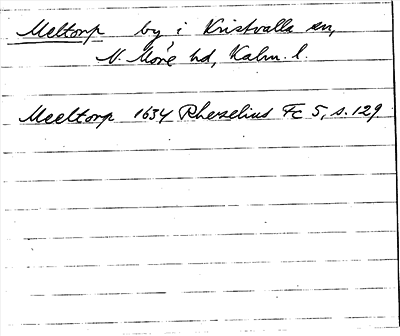 Meltorp by i Kristvalla sn,
N. Möre hd, Kalm. l.
Meeltorp 1634 Rhezelius Fc 5, s. 129.